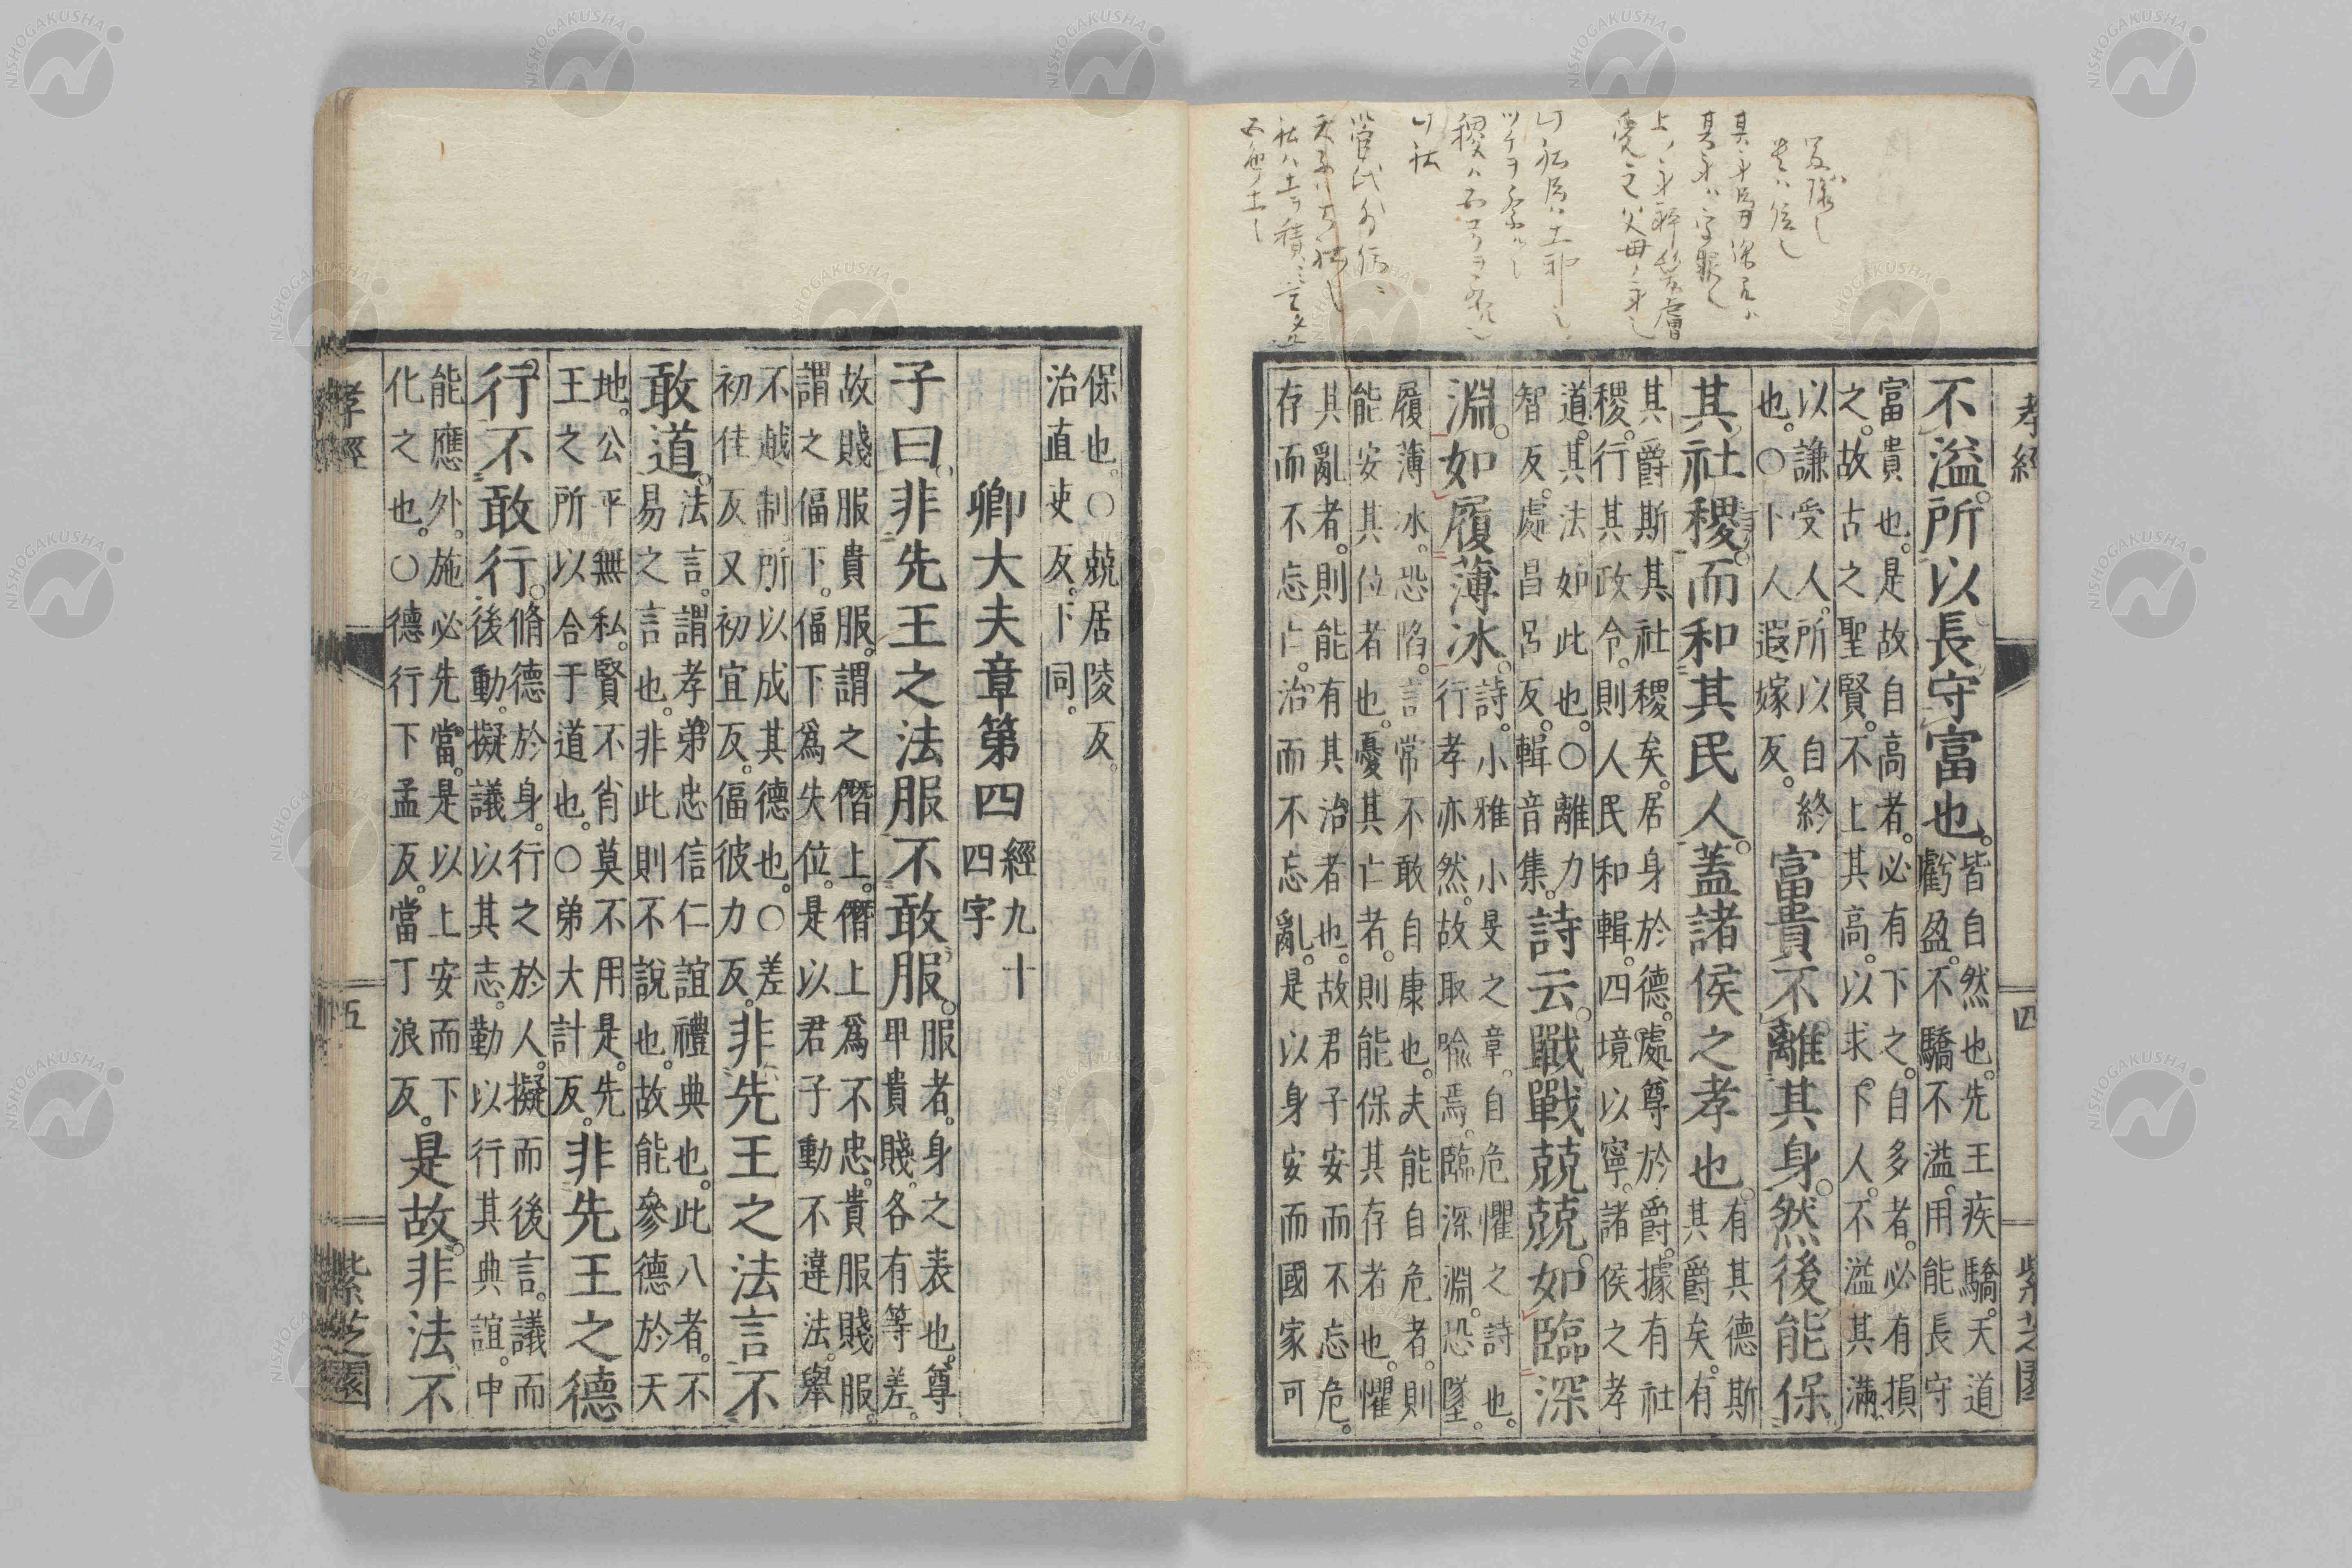 孝經 四 紫芝園
不溢。所以長守富也。
皆自然也。先王疾驕。天道
虧盈。不驕不溢。用能長守
富貴也。是故自高者。必有下之。自多者。必有損
之。故古之聖賢。不上其高。以求下人。不溢其滿
以謙受人。所以自終
也。○下人遐嫁反。
富貴不離其身。然後能保
其社稷。而和其民人。蓋諸侯之孝也。
有其德斯
其爵矣。有
其爵斯其社稷矣。居身於德。處尊於爵。據有社
稷。行其政令。則人民和輯。四境以寧。諸侯之孝
道。其法如此也。○離力
智反。處昌呂反。輯音集。
詩云。戰戰兢兢。如臨深
淵。如履薄冰。
詩。小雅小旻之章。自危懼之詩也。
行孝亦然。故取喻焉。臨深淵。恐墜。
履薄冰。恐陷。言常不敢自康也。夫能自危者。則
能安其位者也。憂其亡者。則能保其存者也。懼
其亂者。則能有其治者也。故君子安而不忘危。
存而不忘亡。治而不忘亂。是以身安而國家可
保也。○兢居陵反。
治直吏反。下同。
卿大夫章第四
經九十
四字
子曰。非先王之法服不敢服。
服者。身之表也。尊
卑貴賤。各有等差。
故賤服貴服。謂之僭上。僭上爲不忠。貴服賤服。
謂之偪下。偪下爲失位。是以君子動不違法。舉
不越制。所以成其德也。○差
初佳反又初宜反。偪彼力反。
非先王之法言不
敢道。
法言。謂孝弟忠信仁誼禮典也。此八者。不
易之言也。非此則不說也。故能參德於天
地。公平無私。賢不肖莫不用是。先
王之所以合于道也。○弟大計反。
非先王之德
行。不敢行。
脩德於身。行之於人。擬而後言。議而
後動。擬議以其志。動以行其典誼。中
能應外。施必先當。是以上安而下
化之也。○德行下孟反。當丁浪反。
是故。非法不
孝經 五 紫芝園
NISHOGAKUSHA